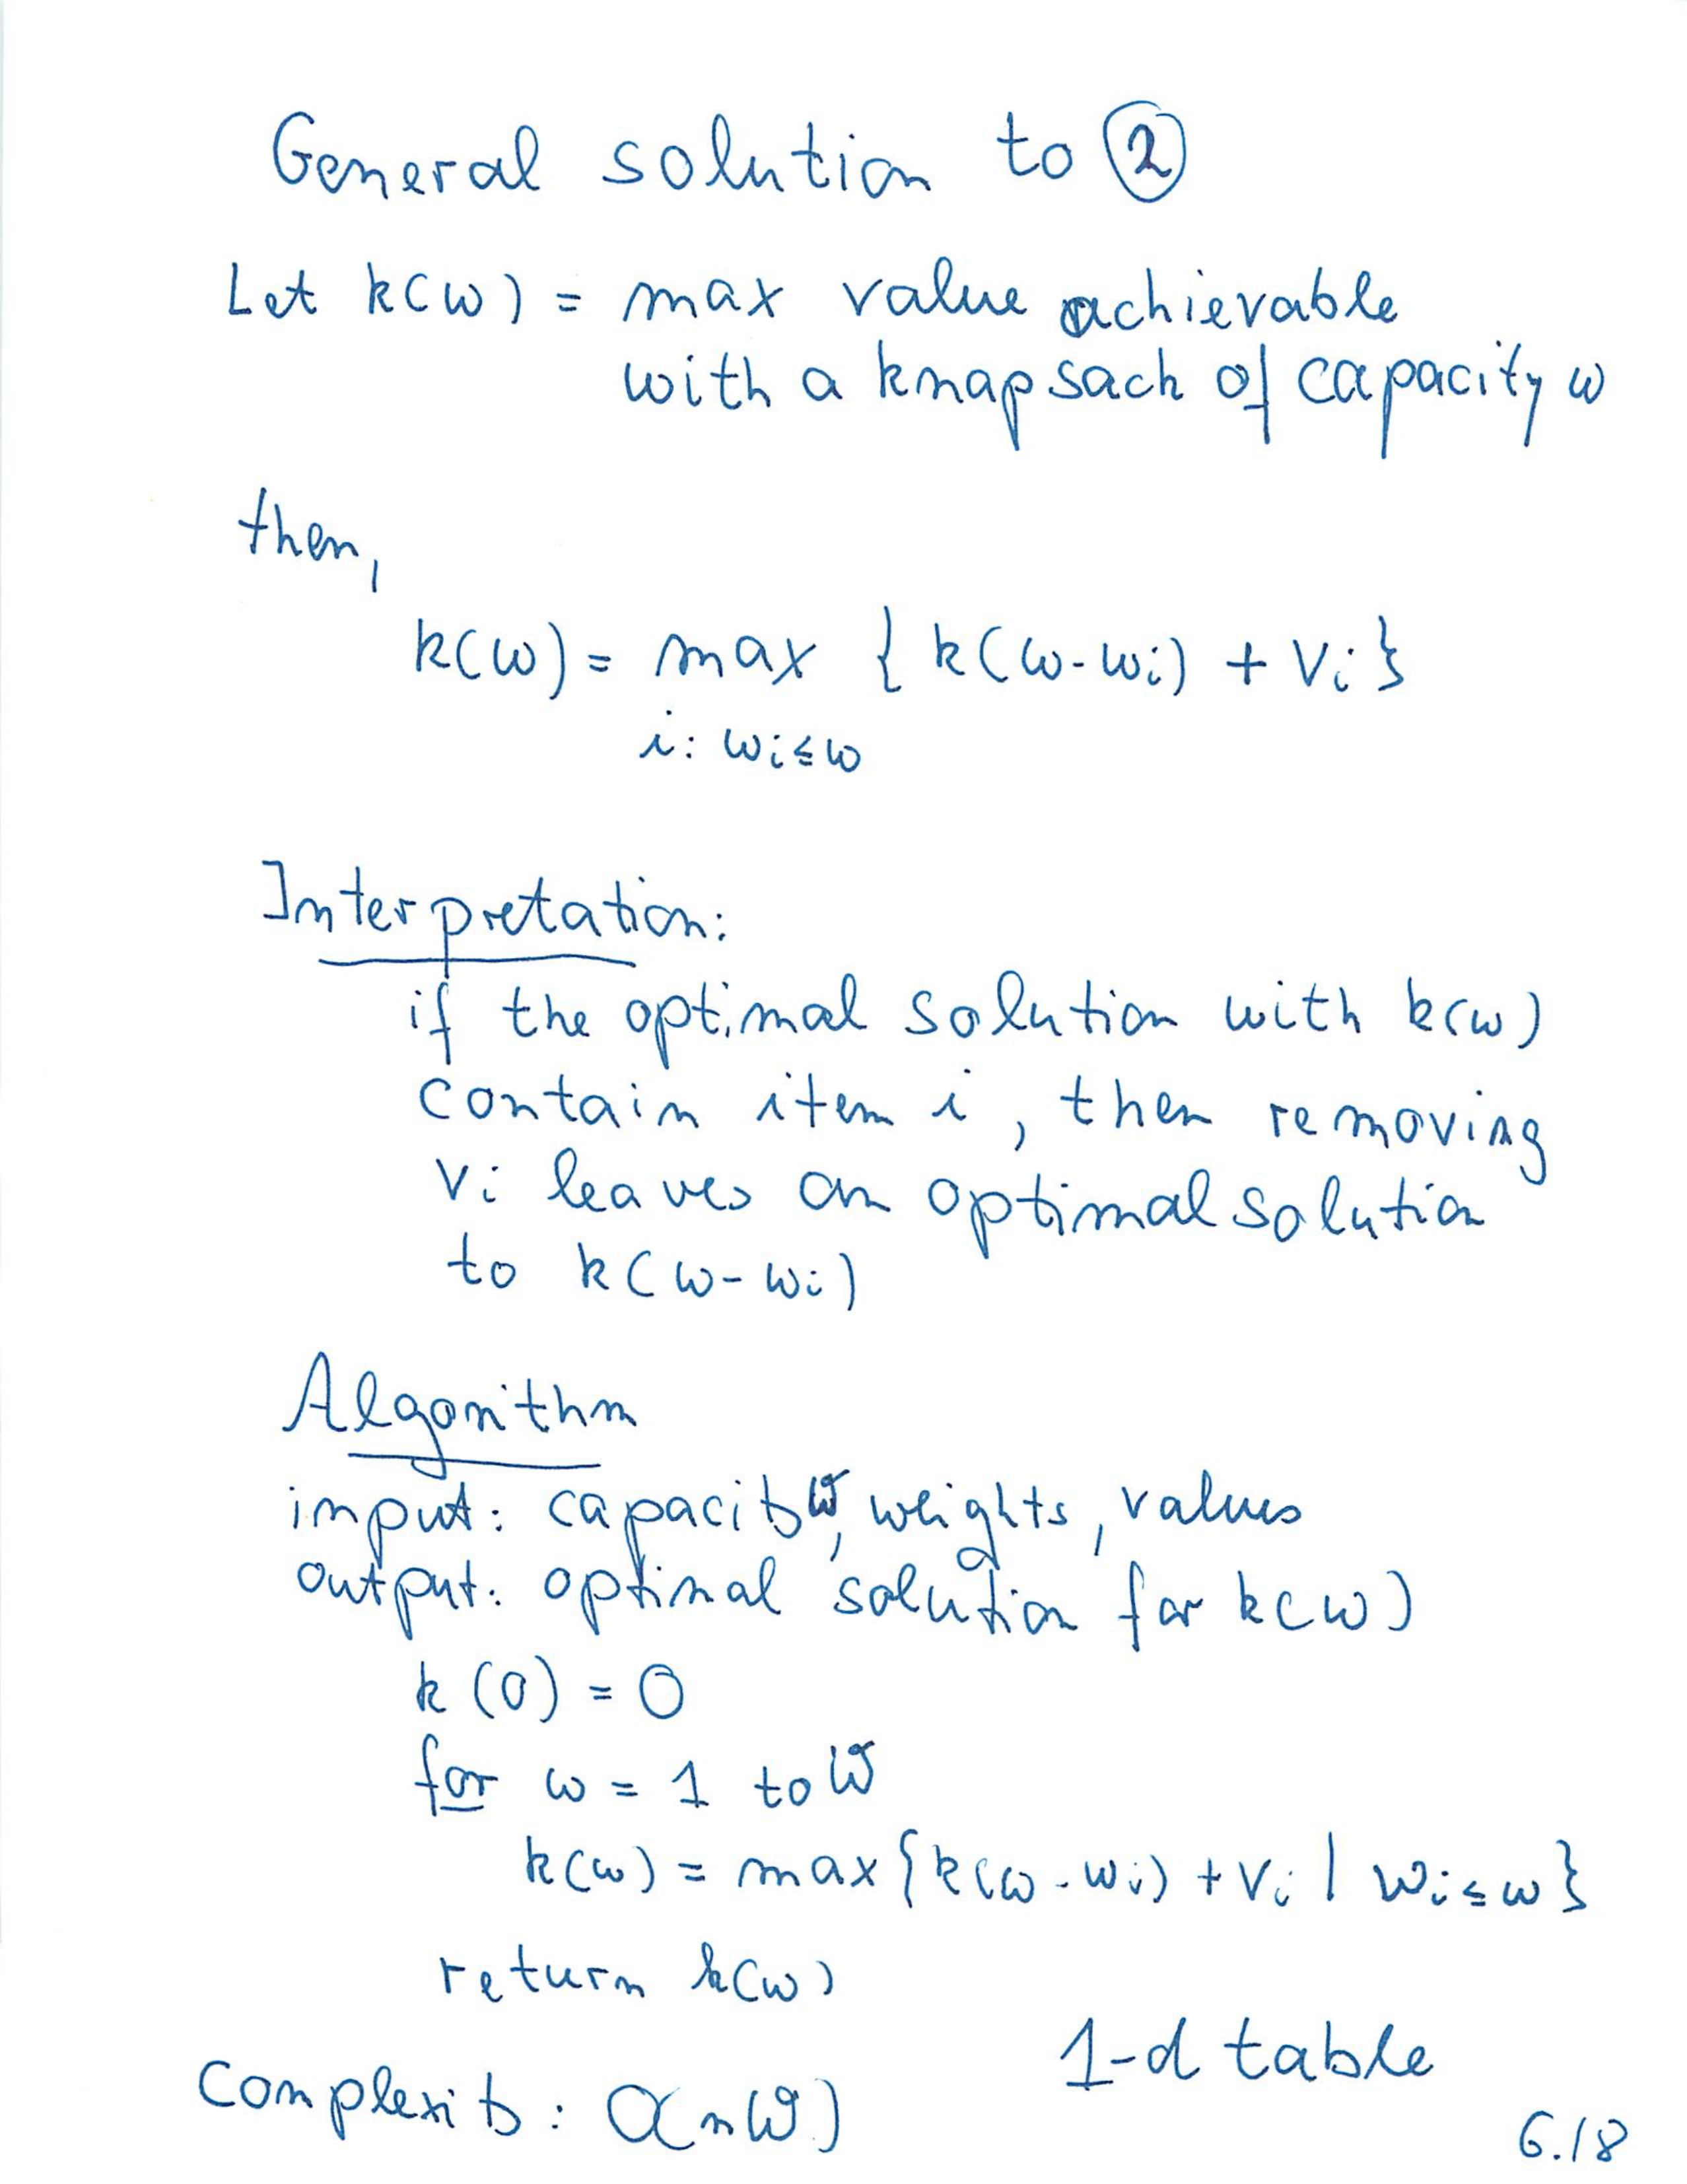 General solution to ②
Let k(w) = max value achievable
with a knapsack of capacity w
then,
k(w) = max { k(w-wi) + vi }
i: wi≤w
Interpretation:
if the optimal solution with k(w)
contain item i, then removing
vi leaves an optimal solution
to k(w-wi)
Algorithm
input: capacity W, weights, values
output: optimal solution for k(w)
k(0) = 0
for w = 1 to W
k(w) = max{k(w-wi) + vi | wi≤w}
return k(w)
1-d table
Complexity: O(nW)
6.18